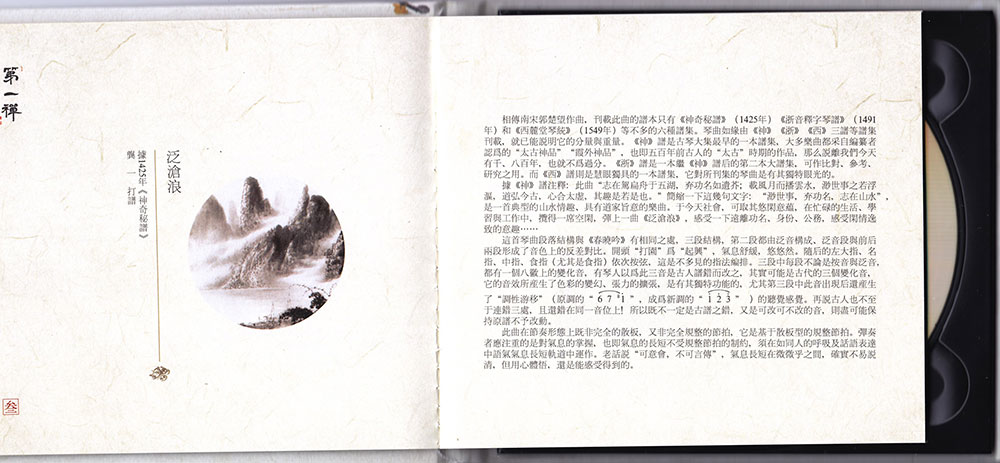 第一禪
泛滄浪
據1425年《神奇秘譜》
龔 一 打譜
叁
相傳南宋郭楚望作曲，刊載此曲的譜本只有《神奇秘譜》（1425年）《浙音釋字琴譜》（1491
年）和《西麓堂琴統》（1549年）等不多的六種譜集。琴曲如緣由《神》《浙》《西》三譜等譜集
刊載，就已能説明它的分量與重量。《神》譜是古琴大集最早的一本譜集，大多樂曲都采自編纂者
認爲的“太古神品”“霞外神品”，也即五百年前古人的“太古”時期的作品，那么説離我們今天
有千、八百年，也就不爲過分。《浙》譜是一本繼《神》譜后的第二本大譜集，可作比對，參考，
研究之用。而《西》譜則是慧眼獨具的一本譜集，它對所刊集的琴曲是有其獨特眼光的。
據《神》譜注釋：此曲“志在駕扁舟于五湖，弃功名如遺芥；載風月而播雲水，渺世事之若浮
漚，道弘今古，心合太虛，其趣是若是也。”簡縮一下這幾句文字：“渺世事，弃功名，志在山水”，
是一首典型的山水情趣，具有道家旨意的樂曲。于今天社會，可取其悠閑意蘊，在忙碌的生活、學
習與工作中，攬得一席空閑，彈上一曲《泛滄浪》，感受一下遠離功名、身份、公務，感受閑情逸
致的意趣……
這首琴曲段落結構與《春曉吟》有相同之處，三段結構，第二段都由泛音構成，泛音段與前后
兩段形成了音色上的反差對比。開頭“打圓”爲“起興”，氣息舒緩，悠悠然。隨后的左大指、名
指、中指、食指（尤其是食指）依次按弦，這是不多見的指法編排。三段中每段不論是按音與泛音，
都有一個八徽上的變化音，有琴人以爲此三音是古人譜錯而改之，其實可能是古代的三個變化音，
它的音效所産生了色彩的變幻、張力的擴張，是有其獨特功能的，尤其第三段中此音出現后還産生
了“調性游移”（原調的“6 7 1”，成爲新調的“1 2 3”）的聽覺感覺。再説古人也不至
于連錯三處，且還錯在同一音位上！所以既不一定是古譜之錯，又是可改可不改的音，則盡可能保
持原譜不予改動。
此曲在節奏形態上既非完全的散板，又非完全規整的節拍，它是基于散板型的規整節拍。彈奏
者應注重的是對氣息的掌握，也即氣息的長短不受規整節拍的制約，須在如同人的呼吸及話語表達
中語氣氣息長短軌道中運作。老話説“可意會，不可言傳”，氣息長短在微微乎之間，確實不易説
清，但用心體悟，還是能感受得到的。